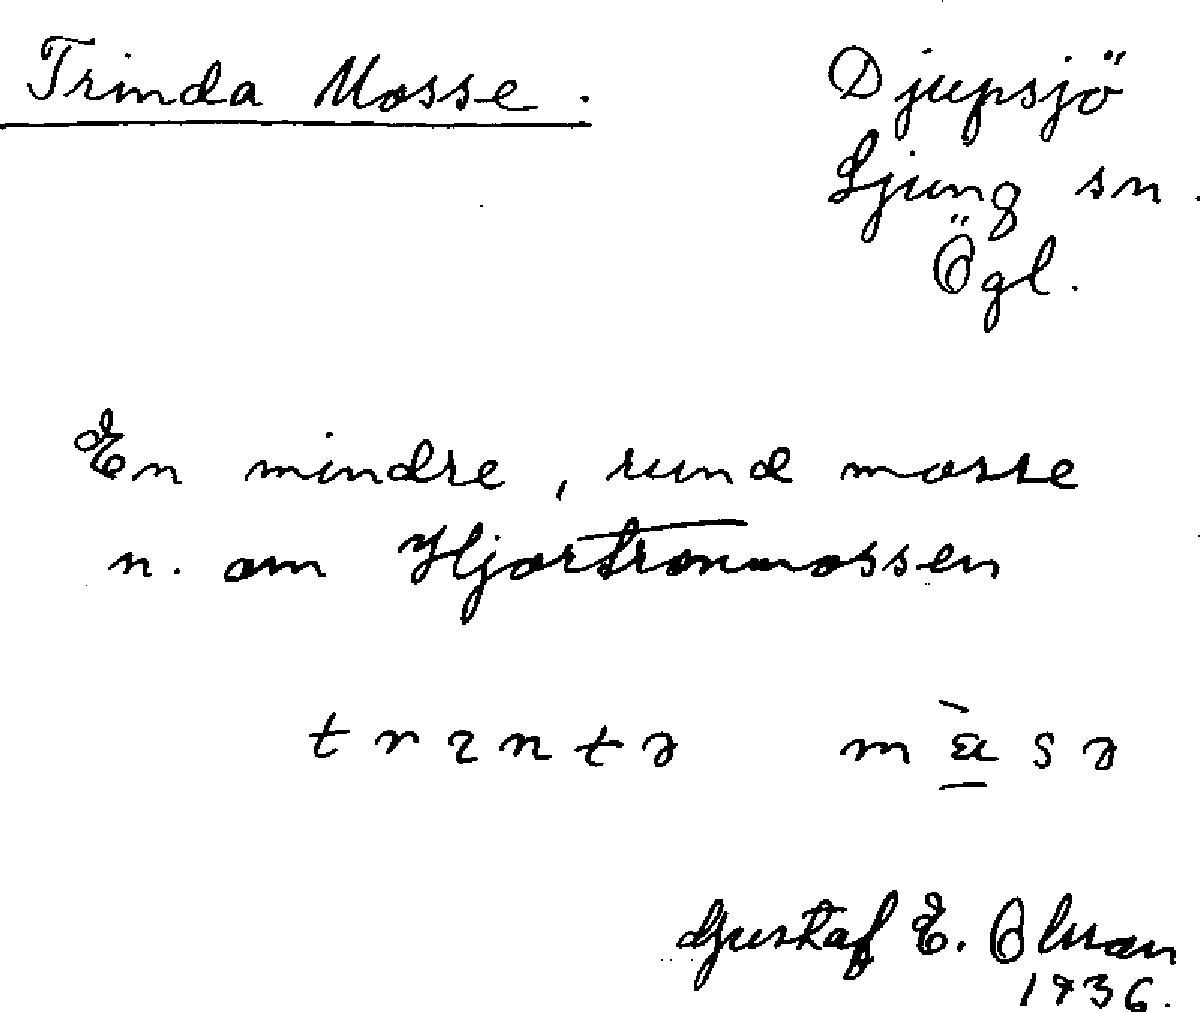 Trinda Mosse.
Djupsjö
Ljung sn.
Ögl.
En mindre, rund mosse
n. om Hjortronmossen
Gustaf E. Olsson
1936.